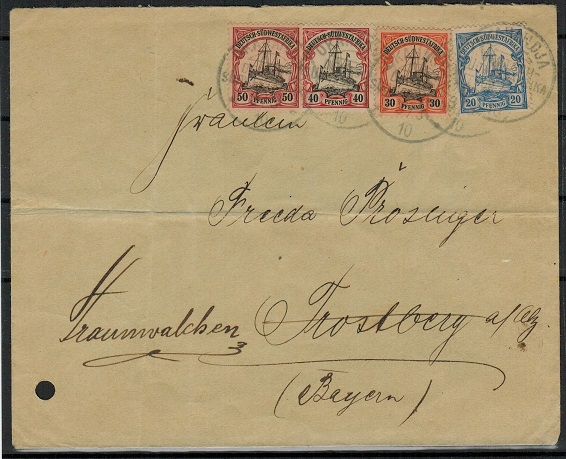 DEUTSCH-SÜDWESTAFRIKA DEUTSCH-SÜDWESTAFRIKA DEUTSCH-SÜDWESTAFRIKA DEUTSCH-SÜDWESTAFRIKA
50 PFENNIG 50 40 PFENNIG 40 30 PFENNIG 30 20 PFENNIG 20
10 10 10
Fräulein
Frieda Prösinger
Traunwalchen Trostberg a/Alz.
(Bayern)